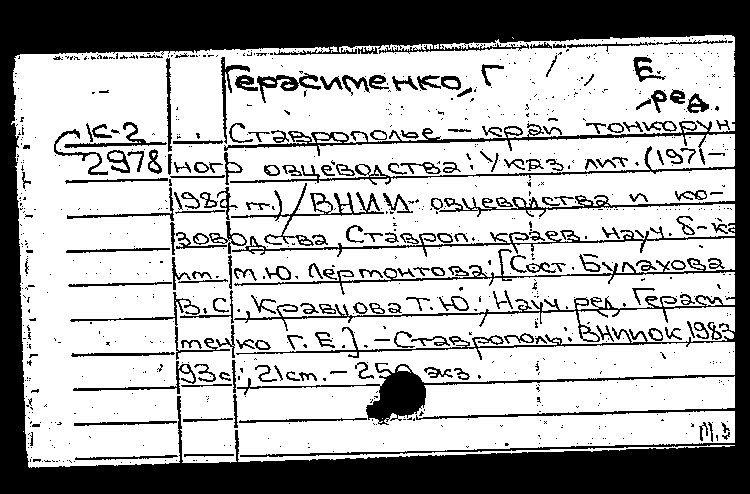 Герасименко, Г Е
-ред.
СК-2 Ставрополье — край тонкорун-
2978 ного овцеводства: Указ. лит. (1971-
1982 гг.) / ВНИИ овцеводства и ко-
зоводства, Ставроп. краев. науч. б-ка
им. М.Ю. Лермонтова; [Сост. Булахова
В.С., Кравцова Т.Ю.; Науч. ред. Гераси-
менко Г.Е.]. - Ставрополь: ВНИИОК, 1983
93с.; 21 ст. - 250 экз.